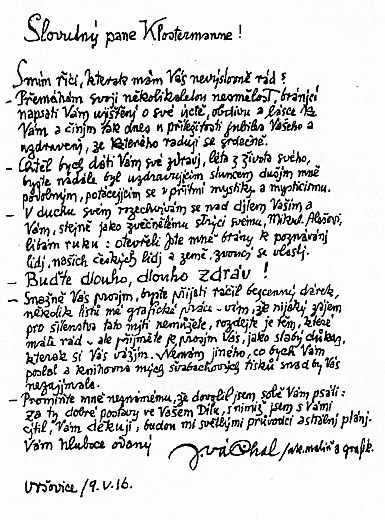 Slovutný pane Klostermanne!
Smím říci, kterak mám Vás nevýslovně rád?
– Přemáhám svoji několikaletou nesmělost, bránící
napsati Vám vyjištění o své úctě, obdivu a lásce k
Vám a činím tak dnes u příležitosti jubilea Vašeho a
uzdravení, ze kterého raduji se srdečně.
– Chtěl bych dáti Vám své zdraví, léta z života svého,
byste nadále byl uzdravujícím sluncem duším mně
podobným, potácejícím se v přítmí mystiky a mysticismu.
– V duchu svém rozechvívám se nad dílem Vaším a
Vám, stejně jako zvěčnělému strýci svému, Mikul. Alšovi,
líbám ruku: otevřeli jste mně brány k poznávání
lidí, našich českých lidí a země, zvoncí se vlastí.
– Buďte dlouho, dlouho zdráv!
– Snažně Vás prosím, byste přijati ráčil bezcenný dárek,
několik listů mé grafické práce – vím, že nijaký zájem
pro šílenstva tato míti nemůžete, rozdejte je těm, které
máte rád – ale přijměte je prosím Vás, jako slabý důkaz,
kterak si Vás vážím. Nemám jiného, co bych Vám
poslal a knihovna mých svatachových tisků snad by Vás
nezajímala.
– Promiňte mně neznámému, že dovolil jsem sobě Vám psáti:
za ty dobré postavy ve Vašem Dílu, s nimiž jsem s Vámi
cítil, Vám děkuji, budou mi světlými průvodci astrální plání.
Vám hluboce oddaný
Váchal / ak. malíř a grafik.
Vršovice / 9. V. 16.